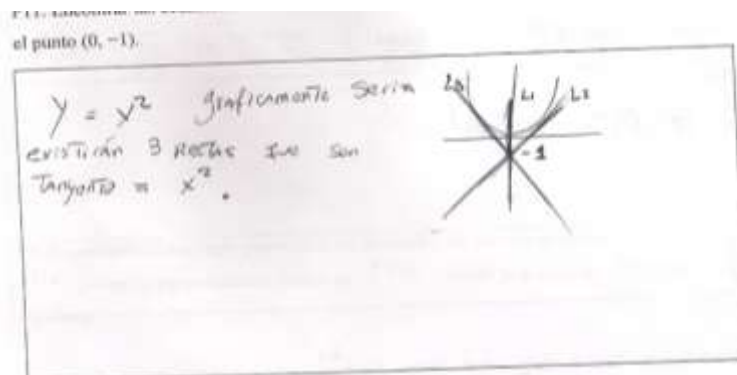 el punto (0, −1).
y = x² graficamente seria
existirán 3 rectas que son
tangente a x².
L3 L1 L2
-1